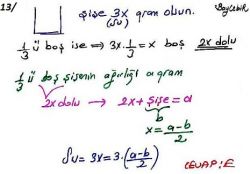 13/
şişe 3x gram olsun.
(su)
1/3 ü boş ise ⇒ 3x.1/3 = x boş 2x dolu
1/3 ü boş şişenin ağırlığı a gram
2x dolu → 2x + şişe = a
b
x = a-b/2
Su = 3x = 3.(a-b/2)
CEVAP: E